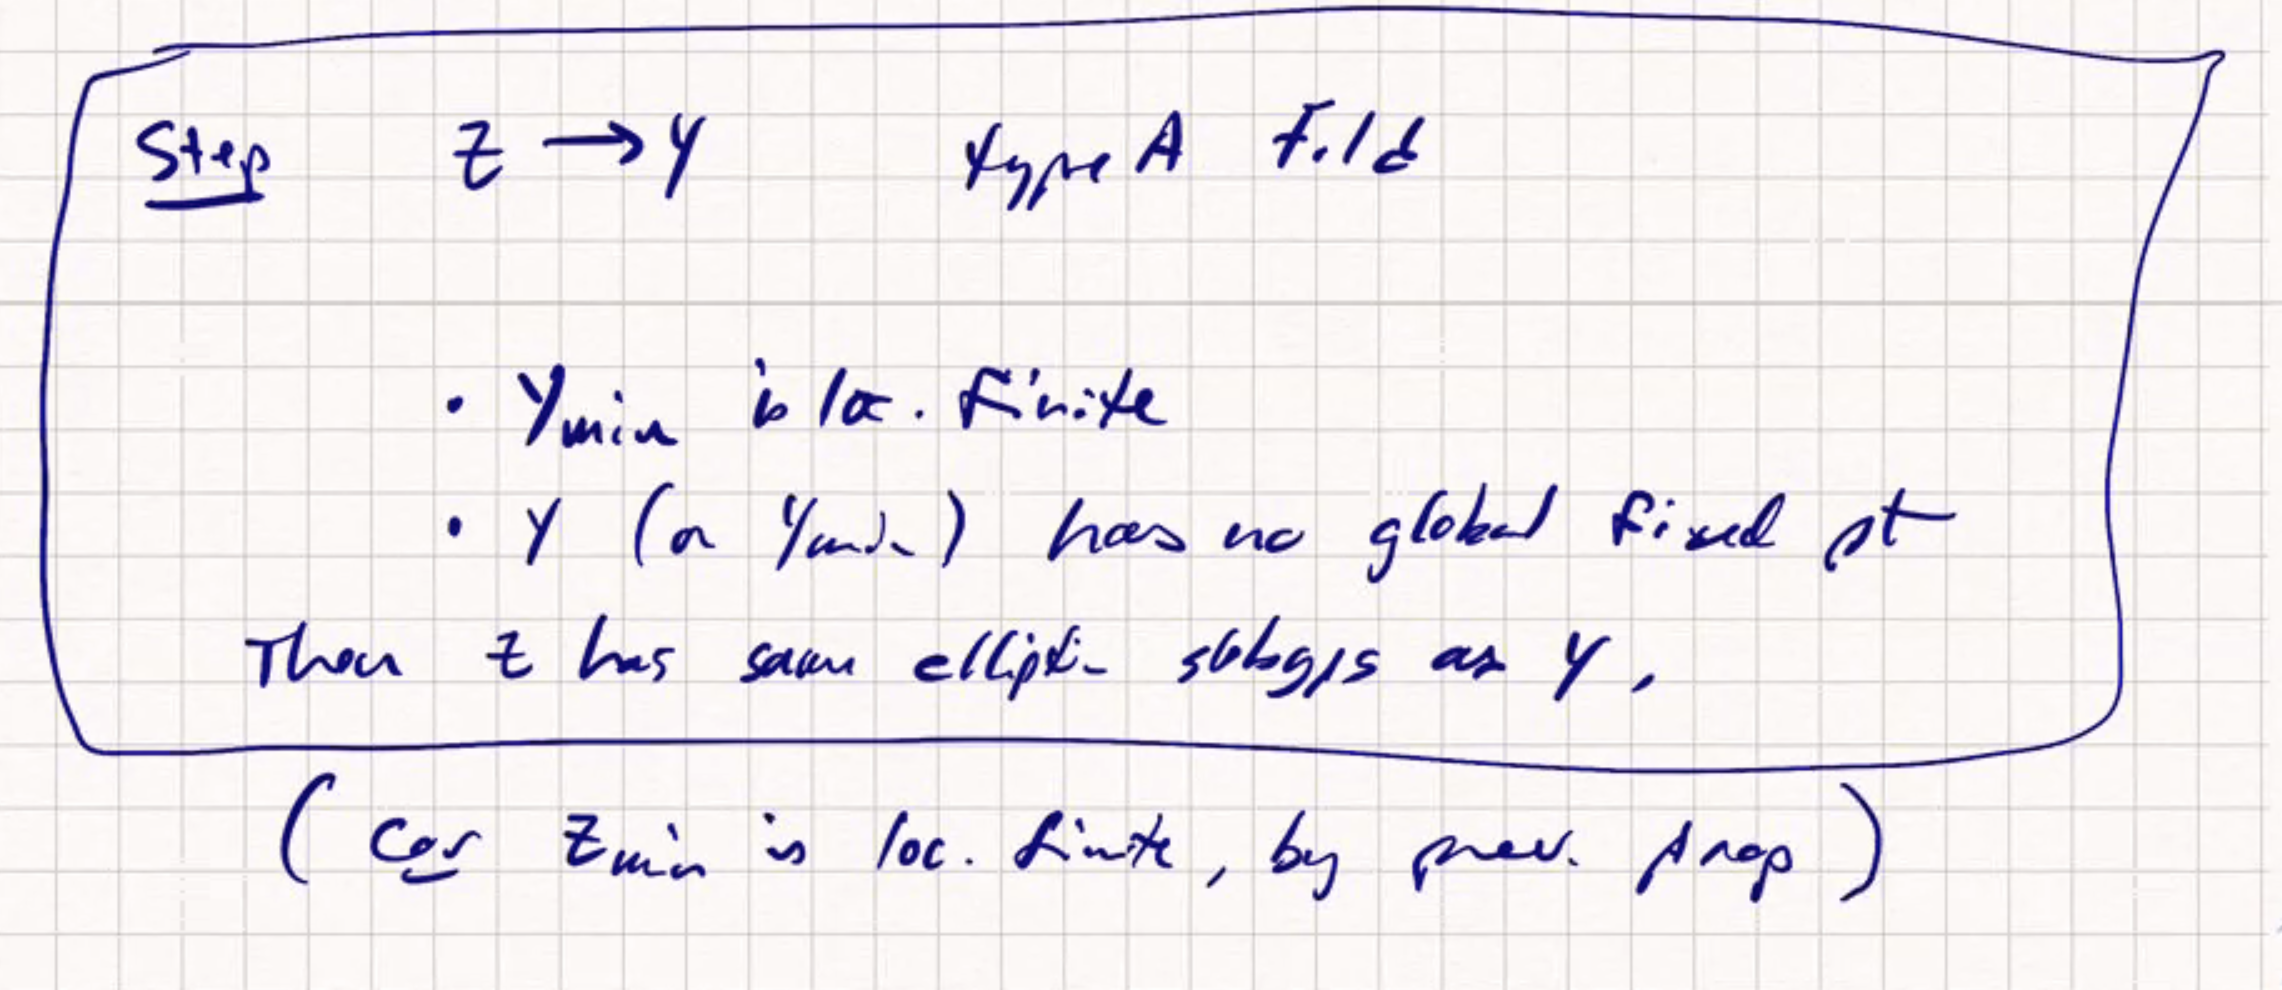 Step Z → Y type A Fold
• Ymin is loc. finite
• Y (or Ymin) has no global fixed pt
Then Z has same elliptic subgps as Y.
(Cor Zmin is loc. finite, by prev. prop)